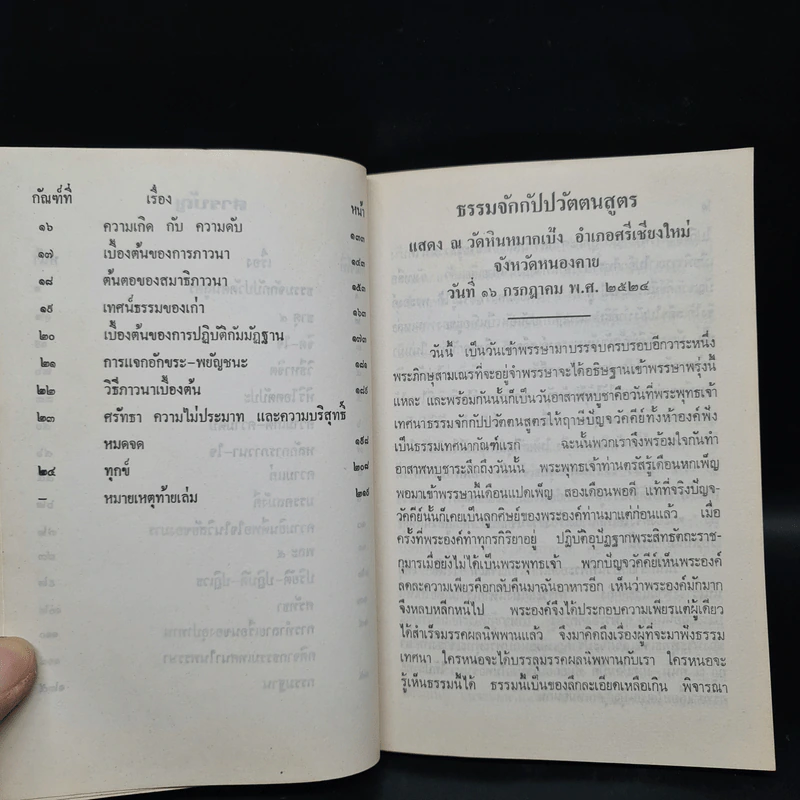 กัณฑ์ที่ เรื่อง หน้า
๑๖ ความเกิด กับ ความดับ ๑๓๓
๑๗ เบื้องต้นของการภาวนา ๑๔๓
๑๘ ต้นตอของสมาธิภาวนา ๑๕๓
๑๙ เทศน์ธรรมของเก่า ๑๖๓
๒๐ เบื้องต้นของการปฏิบัติกัมมัฏฐาน ๑๗๓
๒๑ การแจกอักขระ-พยัญชนะ ๑๘๑
๒๒ วิธีภาวนาเบื้องต้น ๑๘๙
๒๓ ศรัทธา ความไม่ประมาท และความบริสุทธิ์
หมดจด ๑๙๘
๒๔ ทุกข์ ๒๐๘
– หมายเหตุท้ายเล่ม ๒๑๖
ธรรมจักกัปปวัตตนสูตร
แสดง ณ วัดหินหมากเป้ง อำเภอศรีเชียงใหม่
จังหวัดหนองคาย
วันที่ ๑๖ กรกฎาคม พ.ศ. ๒๕๒๔
วันนี้ เป็นวันเข้าพรรษามาบรรจบครบรอบอีกวาระหนึ่ง
พระภิกษุสามเณรที่จะอยู่จำพรรษาจะได้อธิษฐานเข้าพรรษาพรุ่งนี้
แหละ และพร้อมกันนั้นก็เป็นวันอาสาฬหบูชาคือวันที่พระพุทธเจ้า
เทศนาธรรมจักกัปปวัตตนสูตรให้ฤาษีปัญจวัคคีย์ทั้งห้าองค์ฟัง
เป็นธรรมเทศนากัณฑ์แรก ฉะนั้นพวกเราจึงพร้อมใจกันทำ
อาสาฬหบูชาระลึกถึงวันนั้น พระพุทธเจ้าท่านตรัสรู้เดือนหกเพ็ญ
พอมาเข้าพรรษานี้เดือนแปดเพ็ญ สองเดือนพอดี แท้ที่จริงปัญจ-
วัคคีย์นั้นก็เคยเป็นลูกศิษย์ของพระองค์ท่านมาแต่ก่อนแล้ว เมื่อ
ครั้งที่พระองค์ทำทุกรกิริยาอยู่ ปฏิบัติอุปัฏฐากพระสิทธัตถะราช-
กุมารเมื่อยังไม่ได้เป็นพระพุทธเจ้า พวกปัญจวัคคีย์เห็นพระองค์
ลดละความเพียรคือกลับคืนมาฉันอาหารอีก เห็นว่าพระองค์มักมาก
จึงหลบหลีกหนีไป พระองค์จึงได้ประกอบความเพียรแต่ผู้เดียว
ได้สำเร็จมรรคผลนิพพานแล้ว จึงมาคิดถึงเรื่องผู้ที่จะมาฟังธรรม
เทศนา ใครหนอจะได้บรรลุมรรคผลนิพพานกับเรา ใครหนอจะ
รู้เห็นธรรมนี้ได้ ธรรมนี้เป็นของลึกละเอียดเหลือเกิน พิจารณา